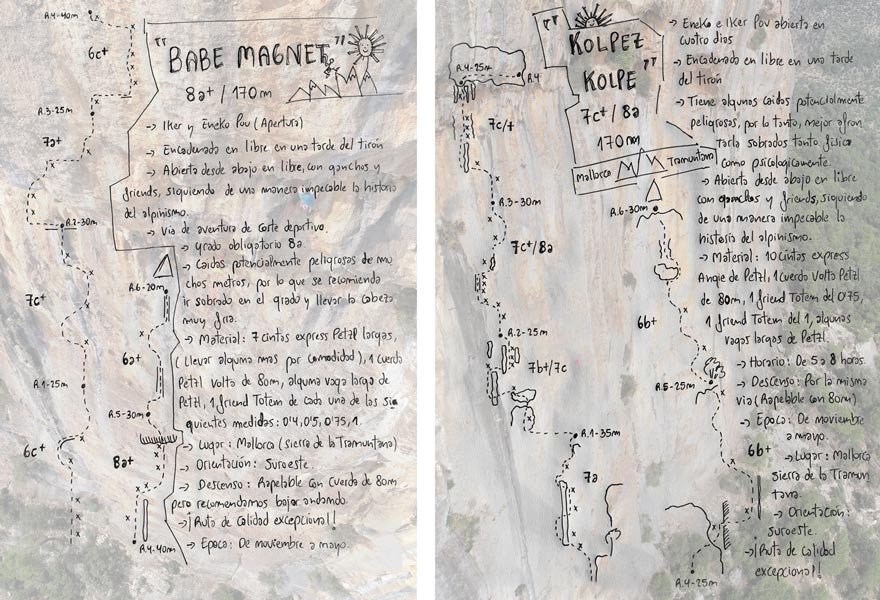 R.4-40m
6c+
R.3-25m
7a+
R.2-30m
7c+
R.1-25m
6c+
"BABE MAGNET"
8a+ / 170m
→ Iker y Eneko Pou (Apertura)
→ Encadenada en libre en una tarde del tirón
→ Abierta desde abajo en libre, con ganchos y
friends, siguiendo de una manera impecable la historia
del alpinismo.
→ Vía de aventura de corte deportivo.
→ grado obligatorio 8a.
→ Caídas potencialmente peligrosas de mu
chos metros, por lo que se recomienda
ir sobrado en el grado y llevar la cabeza
muy fría.
→ Material: 7 cintas express Petzl largas,
(llevar alguna mas por comodidad), 1 cuerda
Petzl Volta de 80m, alguna vaga larga de
Petzl, 1 friend Totem de cada una de las si
guientes medidas: 0'4, 0'5, 0'75, 1.
→ Lugar: Mallorca (sierra de la Tramuntana)
→ Orientación: Suroeste.
→ Descenso: Rapelable con cuerda de 80m
pero recomendamos bajar andando.
→ ¡Ruta de calidad excepcional!!
→ Epoca: De noviembre a mayo.
R.6-20m
6a+
R.5-30m
8a+
R.4-40m
"KOLPEZ
KOLPE"
7c+ / 8a
170m
Mallorca
Tramuntana
R.4-25m
R.4
7c/+
R.3-30m
7c+/8a
R.2-25m
7b+/7c
R.1-35m
7a
R.6-30m
6b+
R.5-25m
6b+
R.4-25m
→ Eneko e Iker Pou abierta en
cuatro dias
→ Encadenada en libre en una tarde
del tirón
→ Tiene algunas caidas potencialmente
peligrosas, por lo tanto, mejor afron
tarla sobrados tanto fisica
como psicologicamente.
→ Abierta desde abajo en libre
con ganchos y friends, siguiendo
de una manera impecable la
historia del alpinismo.
→ Material: 10 cintas express
Angie de Petzl, 1 cuerda Volta Petzl
de 80m, 1 friend Totem del 0'75,
1 friend Totem del 1, algunas
vagas largas de Petzl.
→ Horario: De 5 a 8 horas.
→ Descenso: Por la misma
via (Rapelable con 80m)
→ Epoca: De noviembre
a mayo.
→ Lugar: Mallorca
sierra de la Tramun
tana.
→ Orientación:
suroeste.
→ ¡Ruta de calidad
excepcional!!